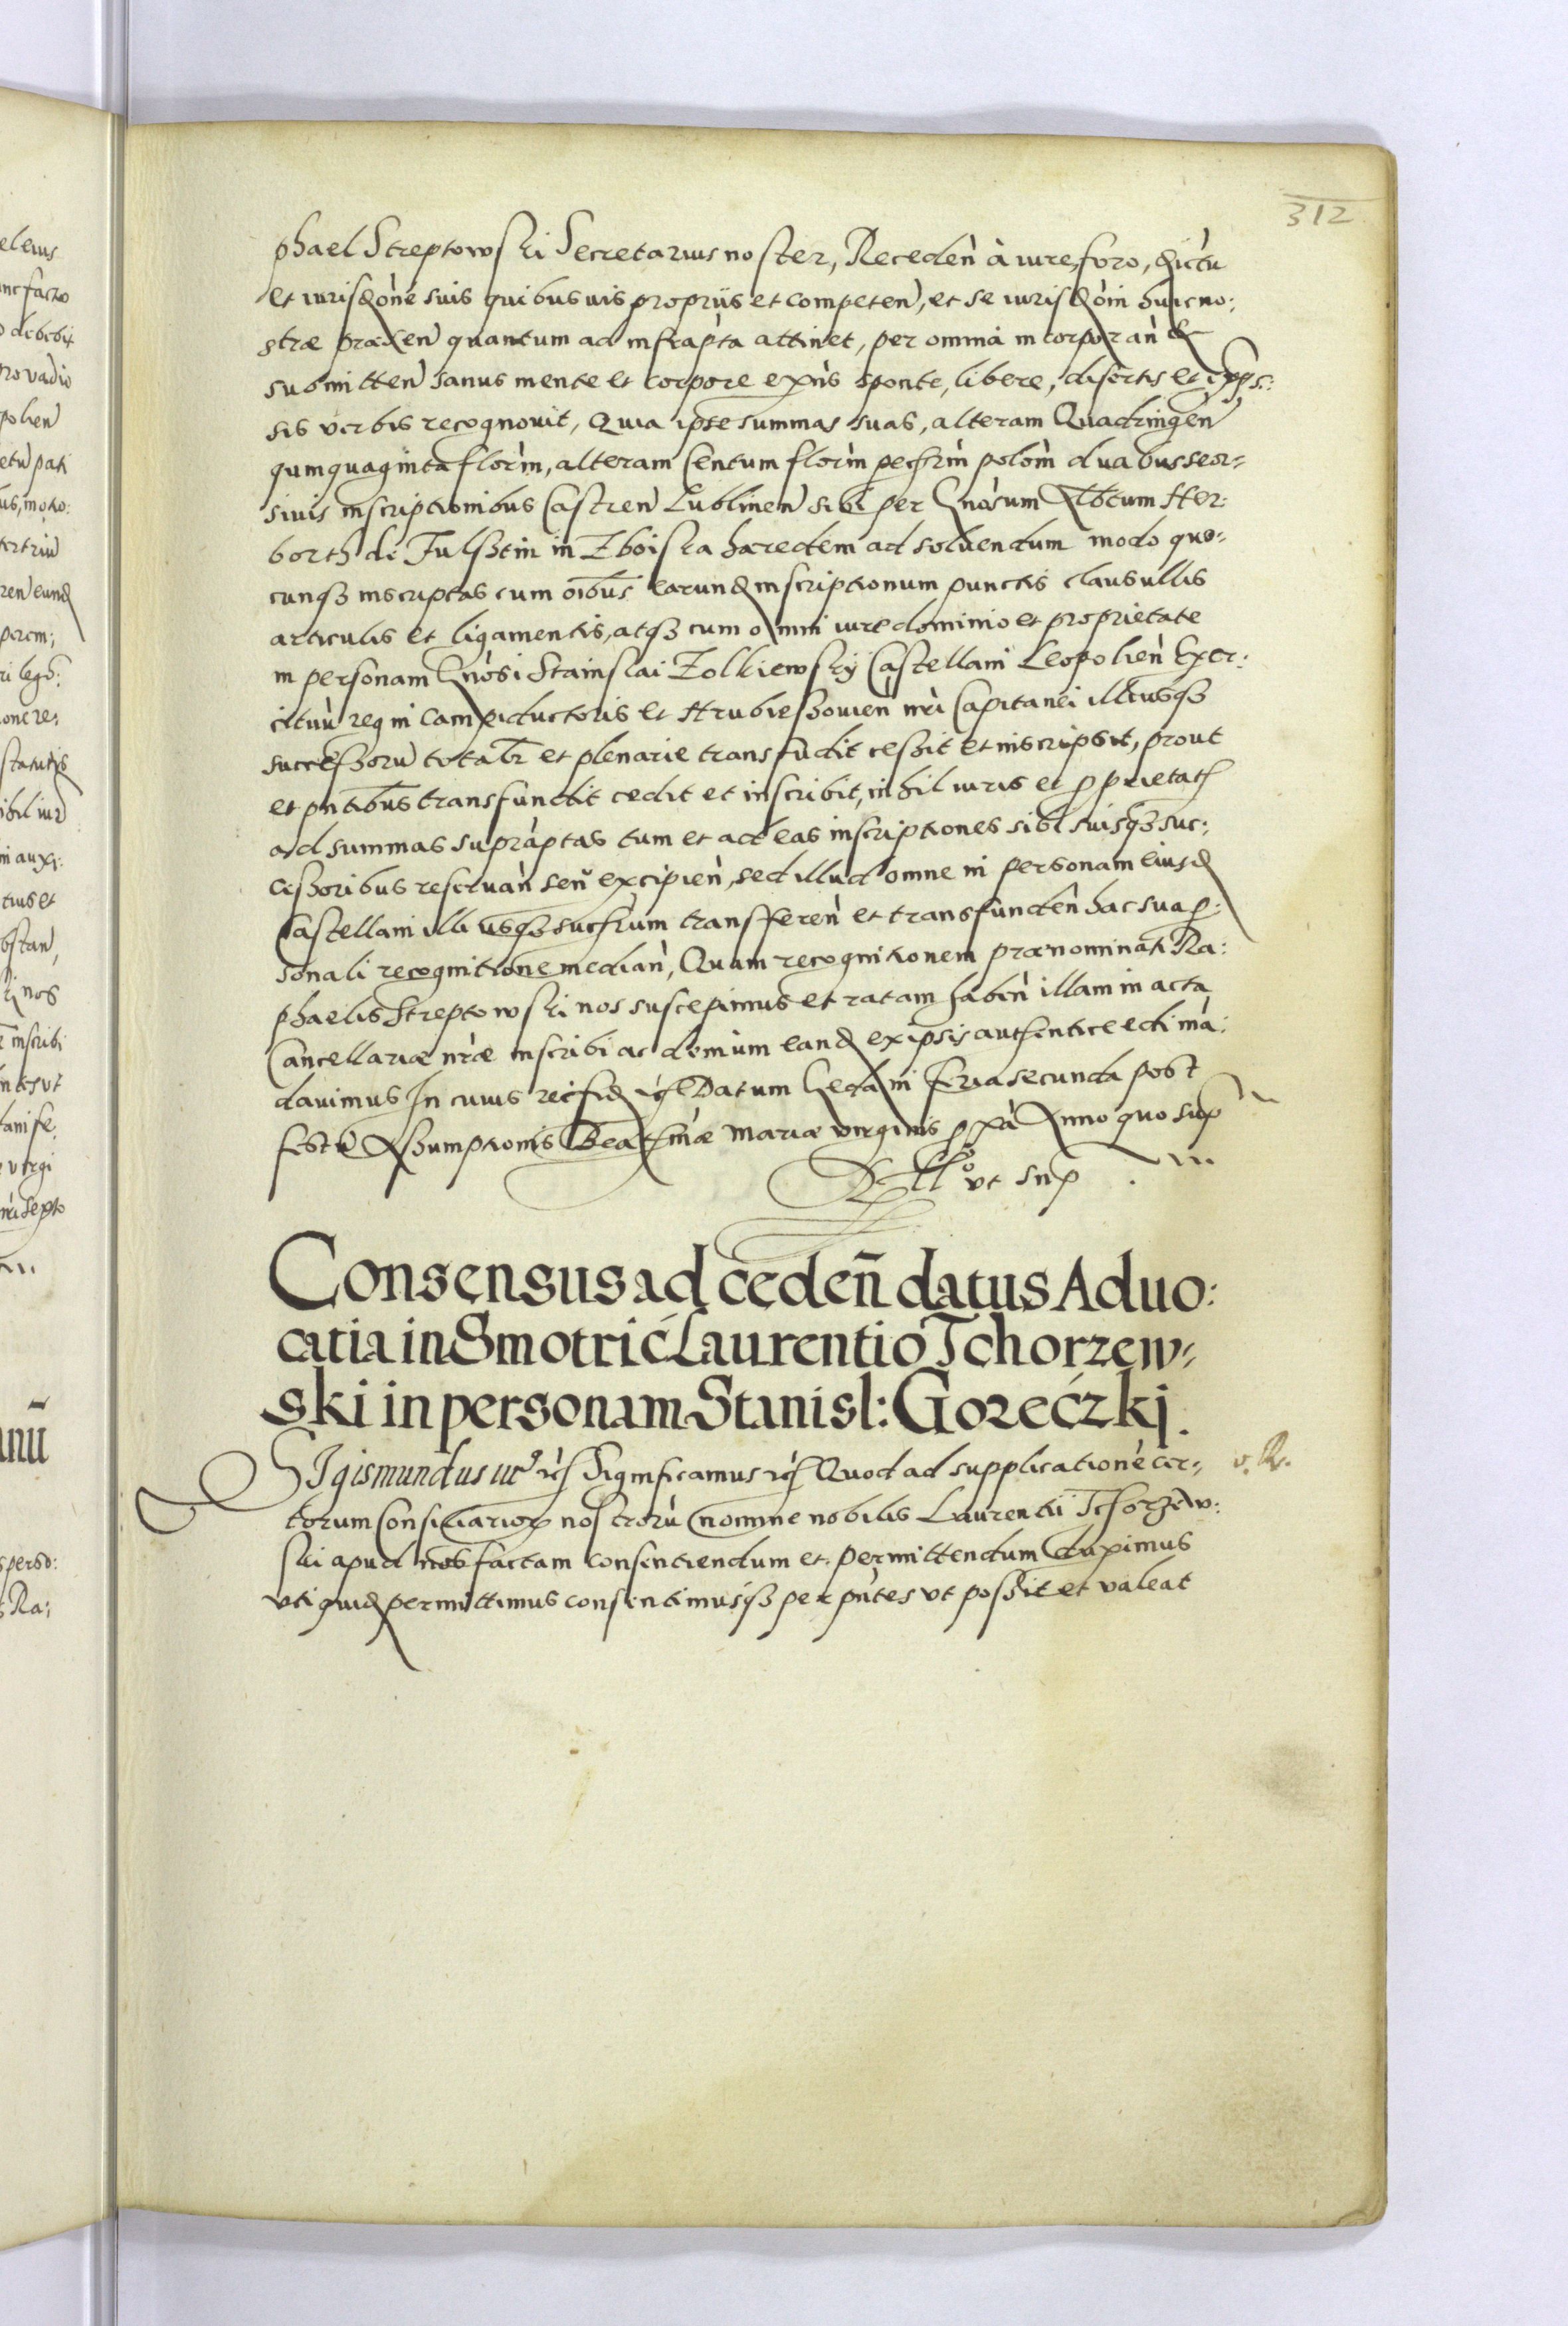 312
phael Streptowski Secretarius noster, Receden à iure, foro, districtu
et iurisdone suis quibusuis propriis et competen, et se iurisdoni huic no:
stræ præsen quantum ad infrapta attinet, per omnia incorporan &
submitten sanus mente et corpore exns sponte, libere, disertis et exps:
sis verbis recognouit, Quia ipse summas suas, alteram Quadringen
quinquaginta florin, alteram Centum florin pechrin polon duabus seor-
siuis inscriptionibus Castren Lublinen sibi per Gnosum Albtum Her:
borth de Fulsztin in Zboiska hæredem ad soluendum modo quo-
cunqz inscriptas cum oibus earund inscriptionum punctis clausullis
articulis et ligamentis, atqz cum omni iure dominio et proprietate
in personam Gnosi Stanislai Zolkiewskij Castellani Leopolien Exer:
cituu regni Campiductoris et Hrubieszouien nri Capitanei illiusqz
successoru totalr et plenarie transfudit cessit et inscripsit, prout
et pntibus transfundit cedit et inscribit, nihil iuris et pprietatis
ad summas supraptas tum et ad eas inscriptiones sibi suisqz suc:
cessoribus reseruan seu excipien, sed illud omne in personam eiusd
Castellani illiusqz sucsrum transferen et transfunden hac sua p:
sonali recognitione median, Quam recognitionem prænominati Ra:
phaelis Streptowski nos suscepimus et ratam haben illam in acta
Cancellariæ nræ inscribi ac demum eand ex ipsis authentice edi ma:
dauimus In cuius rei fid etc Datum Gedani feria secunda post
festu Assumptionis Beatismæ Mariæ virginis pxa Anno quo sup
Rllo vt sup
Consensus ad ceden datus Aduo:
catiæ in Smotric Laurentio Tchorzew-
ski in personam Stanisl: Goreczkj.
SIgismundus iii9 etc Significamus etc Quod ad supplicatione cer-, v. R.
torum Consiliarior nostroru nomine nobilis Laurentii Tchorzew:
ski apud nos factam consentiendum et permittendum duximus
vti quid permittimus consentimusqz per pntes vt possit et valeat